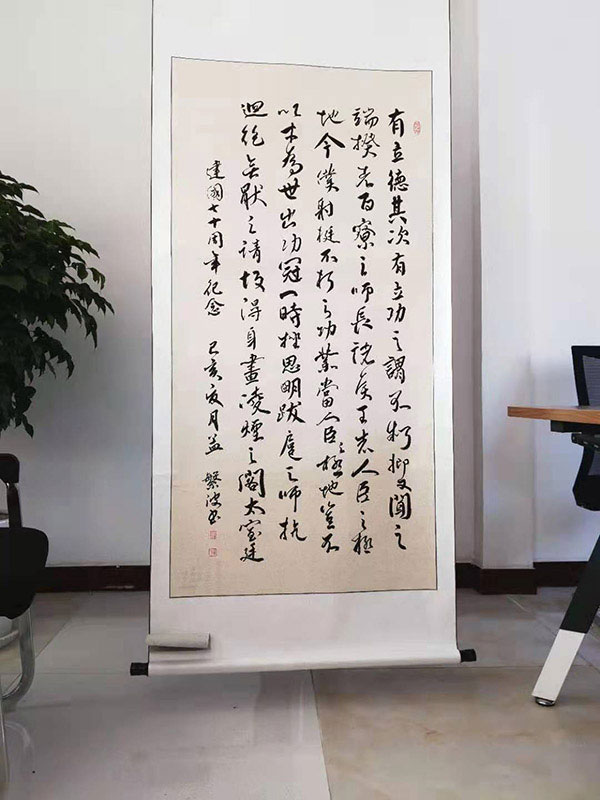 有立德其次有立功之謂不朽抑又聞之
端揆者百寮之師長諸侯王者人臣之極
地今僕射挺不朽之功業當人臣之極地豈不
以才為世出功冠一時挫思明跋扈之師抗
迴紇無猒之請故得身畫淩煙之閣太室廷
建國七十周年紀念 己亥夏月益 繁波书